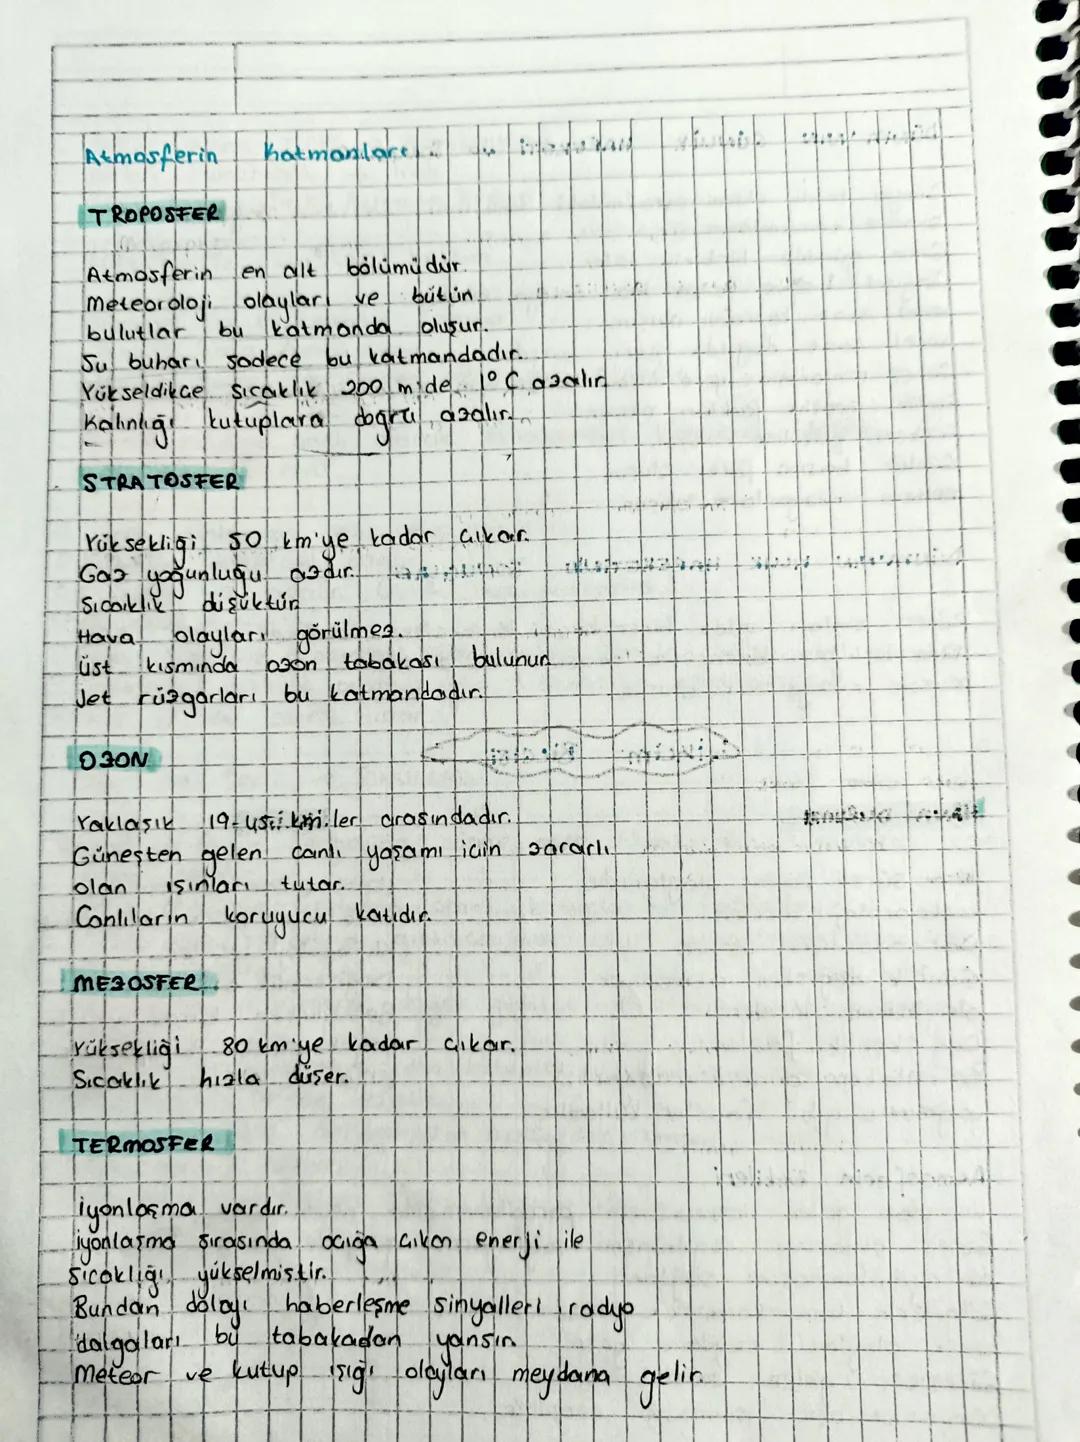 Atmosferin Katmanları
TROPOSFER
Atmosferin en alt bölümüdür.
Meteoroloji olayları ve bütün
bulutlar bu katmanda oluşur.
Su buharı sadece bu katmandadır.
Yükseldikçe sıcaklık 200 m'de 1°C azalır.
Kalınlığı kutuplara doğru azalır.
STRATOSFER
Yüksekliği 50 km'ye kadar çıkar.
Gaz yoğunluğu azdır.
Sıcaklık düşüktür.
Hava olayları görülmez.
Üst kısmında ozon tabakası bulunur.
Jet rüzgarları bu katmandadır.
OZON
Yaklaşık 19-45 km.ler arasındadır.
Güneşten gelen canlı yaşamı için zararlı
olan ışınları tutar.
Canlıların koruyucu katıdır.
MEZOSFER
Yüksekliği 80 km'ye kadar çıkar.
Sıcaklık hızla düşer.
TERMOSFER
İyonlaşma vardır.
İyonlaşma sırasında açığa çıkan enerji ile
sıcaklığı yükselmiştir.
Bundan dolayı haberleşme sinyalleri radyo
dalgaları bu tabakadan yansır.
Meteor ve kutup ışığı olayları meydana gelir.